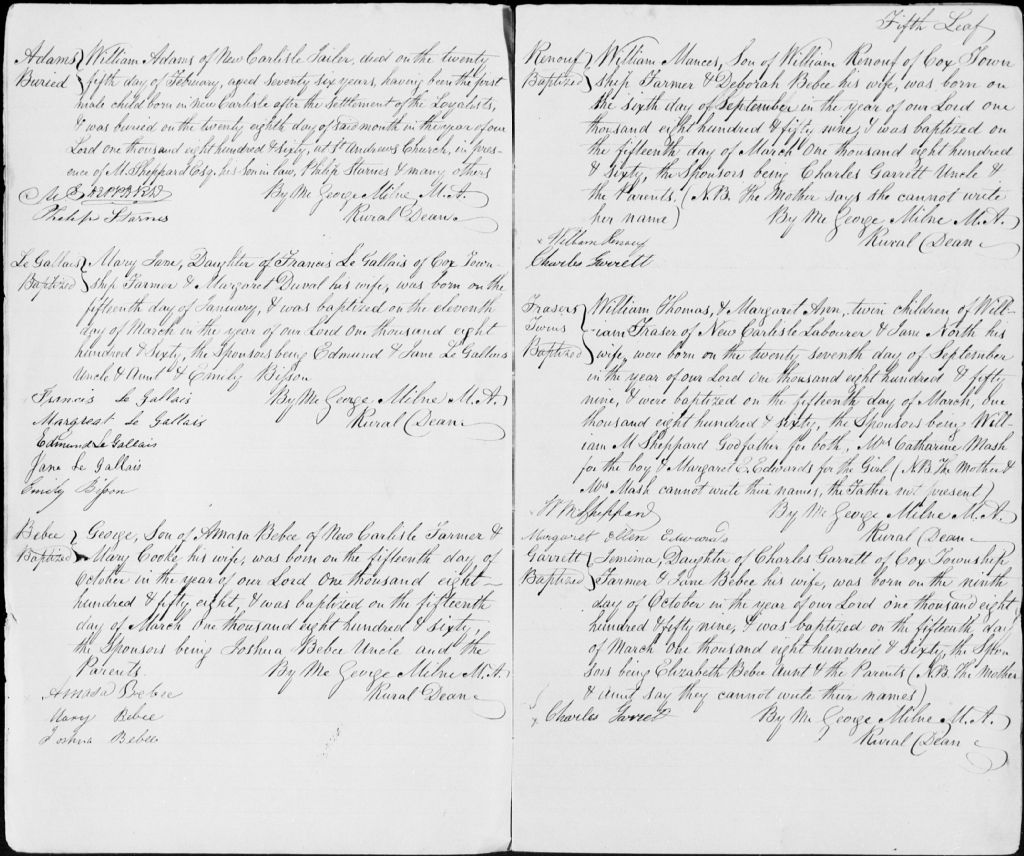 Adams } William Adams of New Carlisle Sailer, died on the twenty
Buried } fifth day of February, aged seventy six years, having been the first
male child born in New Carlisle after the Settlement of the Loyalists,
& was buried on the twenty eighth day of said month in the year of our
Lord one thousand eight hundred & sixty, at St Andrews Church, in pres-
ence of M. Sheppard Esq. his Son in law, Philip Starnes & many others
By Me George Milne M.A.
Philip Starnes Rural Dean
Le Gallais } Mary Jane, Daughter of Francis Le Gallais of Cox Town
Baptized } ship Farmer & Margaret Duval his wife, was born on the
fifteenth day of January, & was baptized on the eleventh
day of March in the year of our Lord one thousand eight
hundred & sixty, the Sponsors being Edmund & Jane Le Gallais
Uncle & Aunt & Emily Bisson
Francis Le Gallais By Me George Milne M.A.
Margreat Le Gallais Rural Dean
Edmund Le Gallais
Jane Le Gallais
Emily Bisson
Bebee } George, Son of Amasa Bebee of New Carlisle Farmer &
Baptized } Mary Cooke his wife, was born on the fifteenth day of
October in the year of our Lord One thousand eight
hundred & fifty eight, & was baptized on the fifteenth
day of March One thousand eight hundred & sixty,
the Sponsors being Joshua Bebee Uncle and the
Parents. By Me George Milne M.A.
Amasa Bebee Rural Dean
Mary Bebee
Joshua Bebee
Fifth Leaf
Renouf } William Mances, Son of William Renouf of Cox Town
Baptized } ship Farmer & Deborah Bebee his wife, was born on
the sixth day of September in the year of our Lord one
thousand eight hundred & fifty nine, & was baptized on
the fifteenth day of March One thousand eight hundred
& Sixty, the Sponsors being Charles Garrett Uncle &
the Parents, (N.B. The Mother says she cannot write
her name) By Me George Milne M.A.
William Renouf Rural Dean
Charles Garrett
Frasers } William Thomas, & Margaret Ann, twin children of Will-
Twins } iam Fraser of New Carlisle Labourer & Jane North his
Baptized } wife, were born on the twenty seventh day of September
in the year of our Lord One thousand eight hundred & fifty
nine, & were baptized on the fifteenth day of March, One
thousand eight hundred & sixty, the Sponsors being Will-
iam M Sheppard Godfather for both, Mrs Catharine Mash
for the boy & Margaret E. Edwards for the Girl (N.B. The Mother &
Mrs Mash cannot write their names, the Father not present)
W M Sheppard By Me George Milne M.A.
Margaret Ellen Edwards Rural Dean
Garrett } Jemima, Daughter of Charles Garrett of Cox Township
Baptized } Farmer & Jane Bebee his wife, was born on the ninth
day of October in the year of our Lord one thousand eight
hundred & fifty nine, & was baptized on the fifteenth day
of March one thousand eight hundred & Sixty, the Spon-
sors being Elizabeth Bebee Aunt & the Parents (N.B. The Mother
& Aunt say they cannot write their names)
Charles Garrett By Me George Milne M.A.
Rural Dean